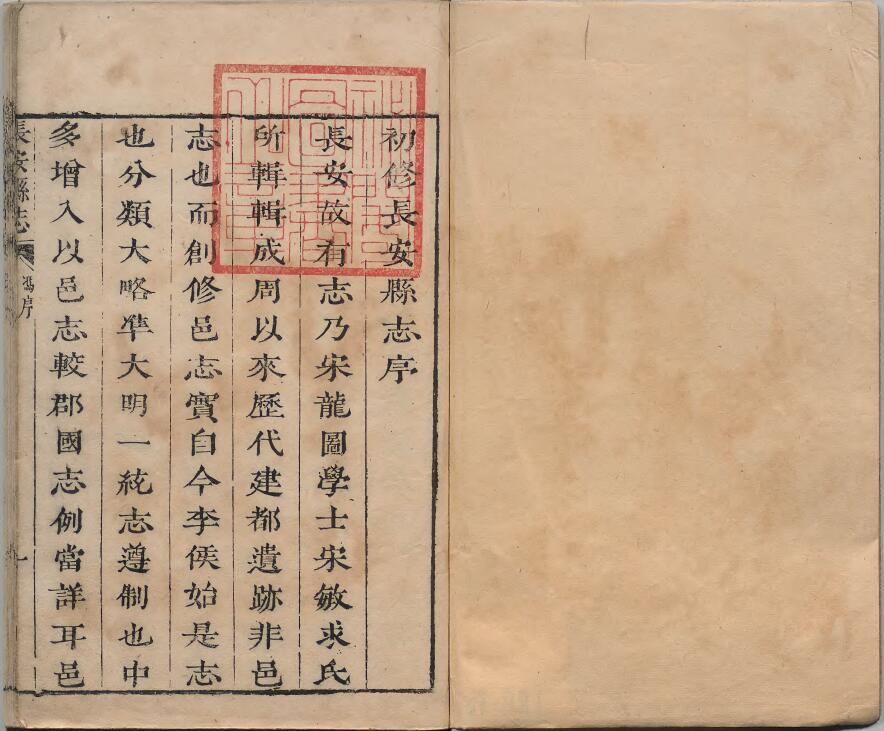 初修長安縣志序
長安故有志乃宋龍圖學士宋敏求氏
所輯輯成周以來歷代建都遺跡非邑
志也而創修邑志實自今李侯始是志
也分類大略準大明一統志遵制也中
多增入以邑志較郡國志例當詳耳邑
長安縣志
馮序
一